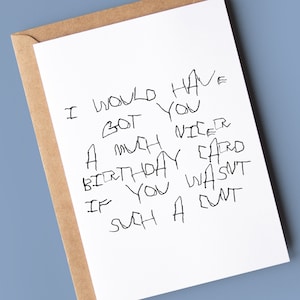 I WOULD HAVE
GOT YOU
A MUCH NICER
BIRTHDAY CARD
IF YOU WASNT
SUCH A CUNT